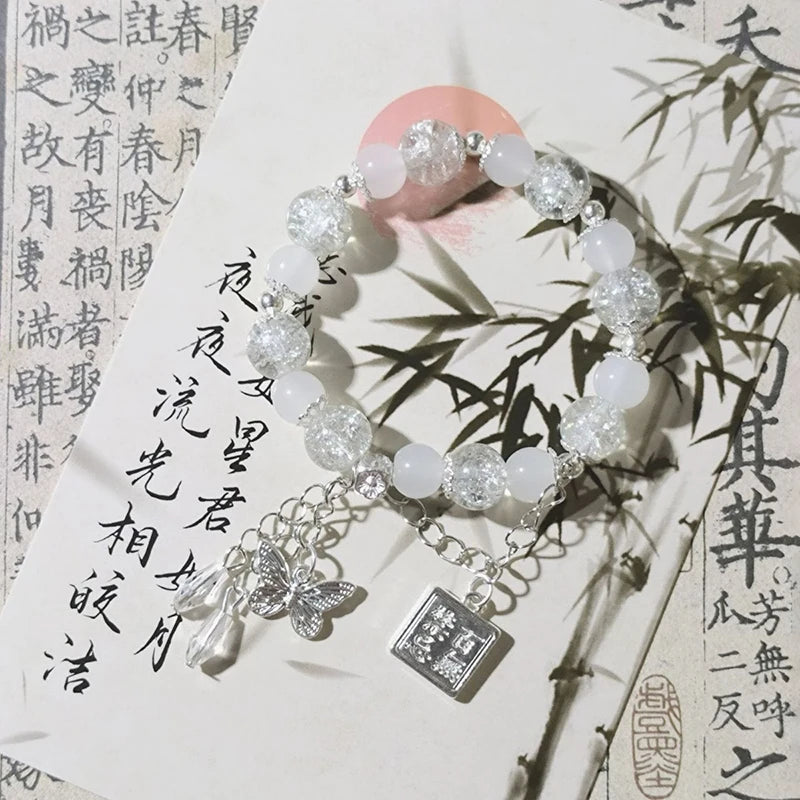 夭
其華
芳無呼
瓜二反
之
賢
春之月
註仲春陰陽
之變有喪禍者娶
禍之故月數滿雖非仲
我如星君如月
夜夜流光相皎洁
百無
禁忌